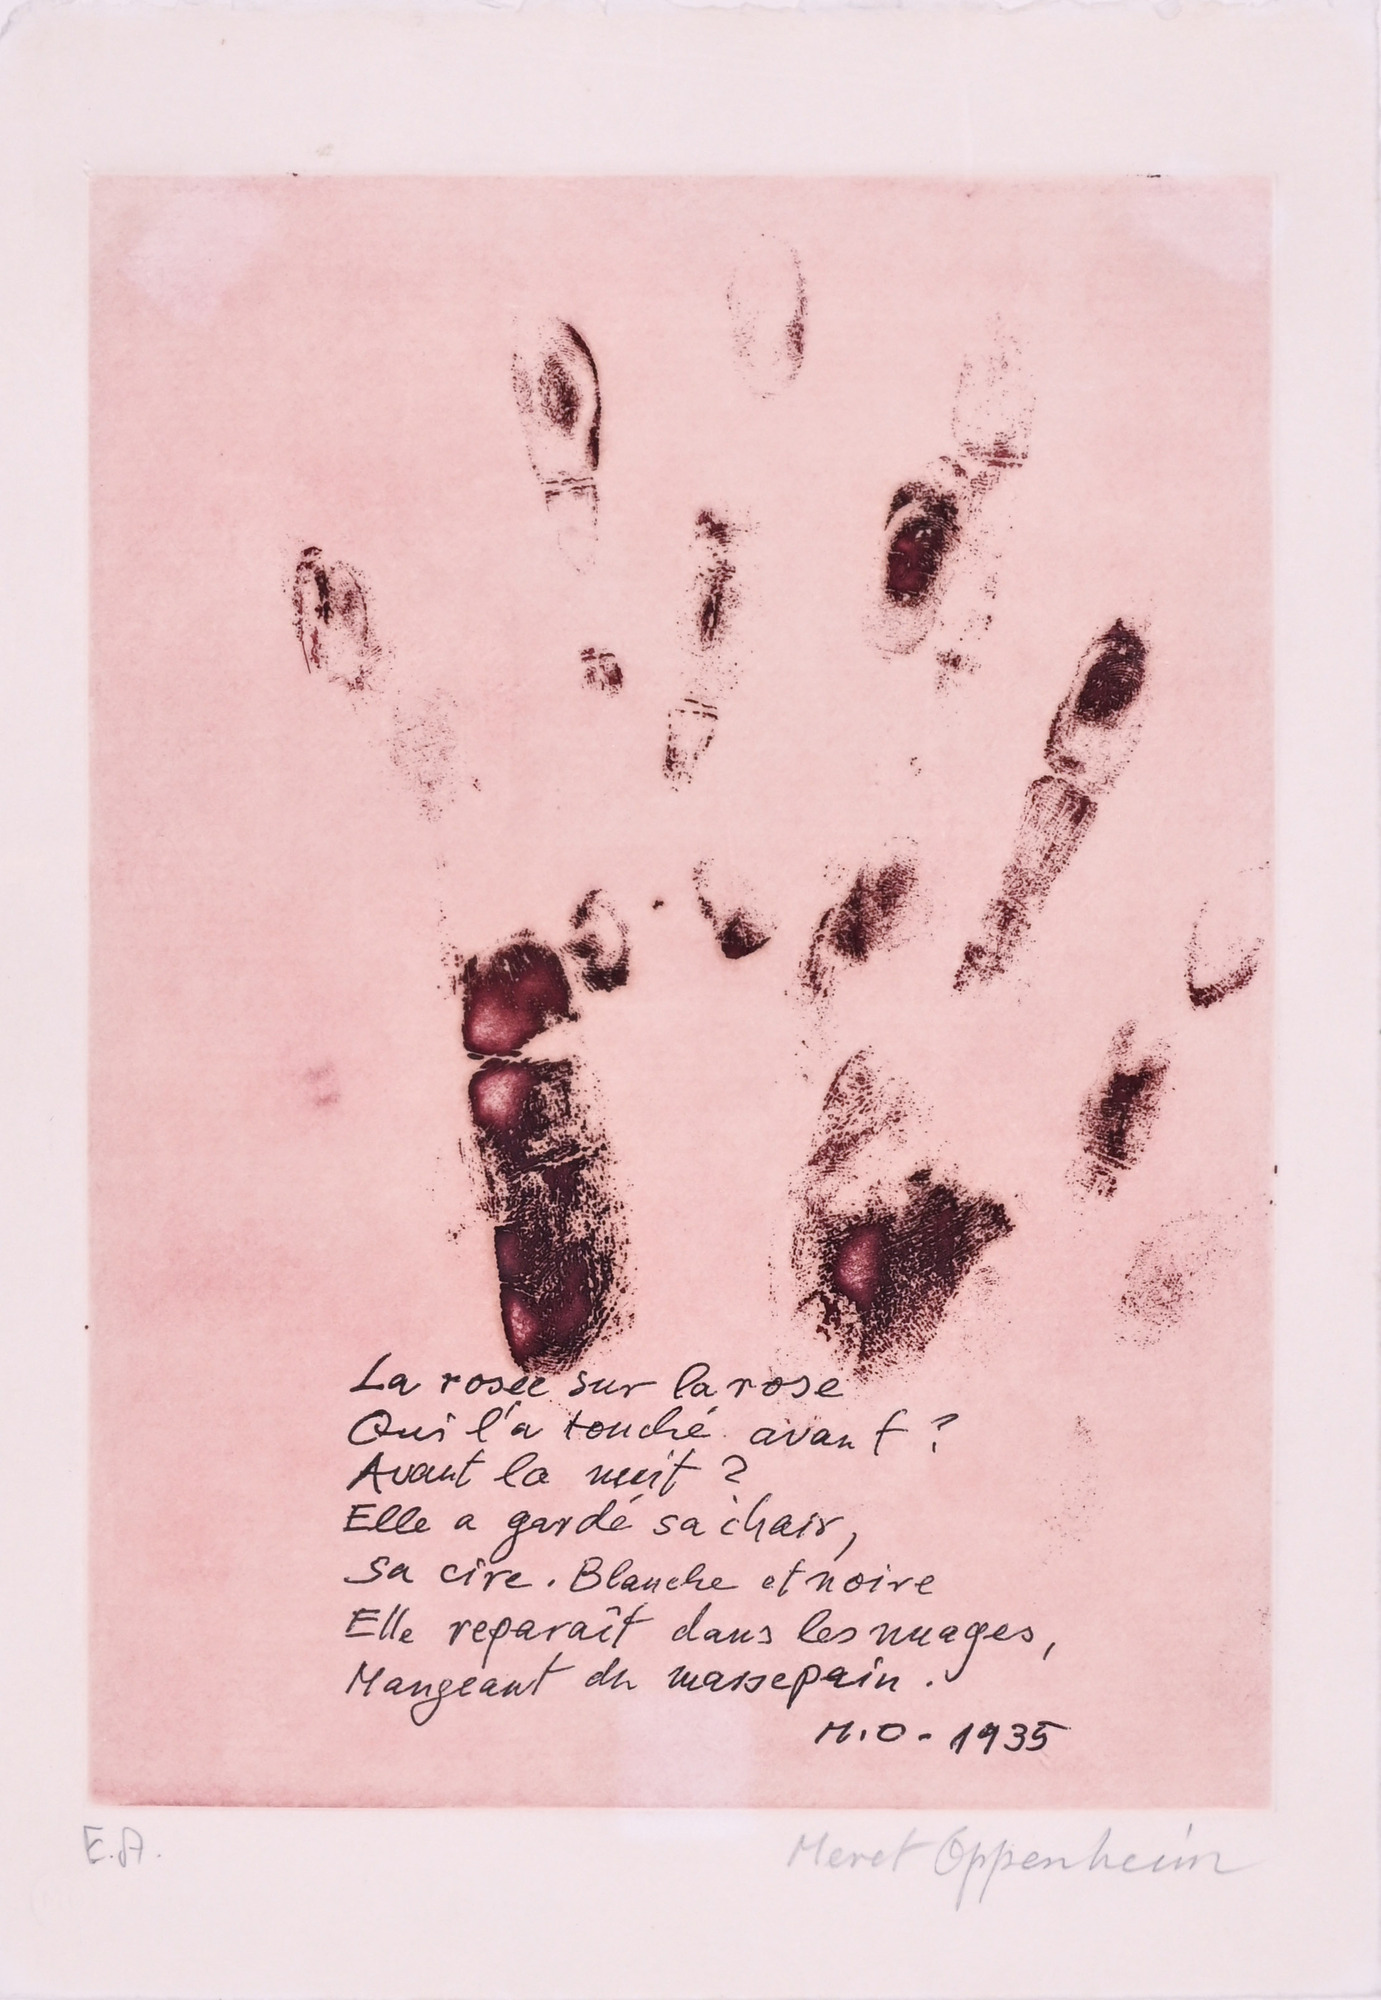 La rosée sur la rose
Qui l'a touché avant ?
Avant la nuit ?
Elle a gardé sa chair,
sa cire. Blanche et noire
Elle reparaît dans les nuages,
Mangeant du massepain.
M.O - 1935
E.A.
Meret Oppenheim